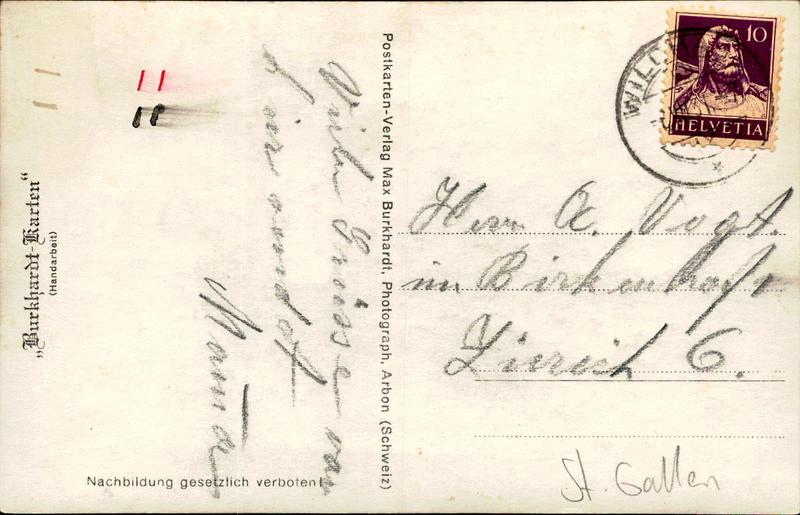 „Burkhardt-Karten“
(Handarbeit)
11
11
Viele Grüsse von
hier sendet
Mama
Nachbildung gesetzlich verboten!
Postkarten-Verlag Max Burkhardt, Photograph, Arbon (Schweiz)
10
HELVETIA
Herrn A. Vogt.
im Birkenhof
Zürich 6.
St. Gallen